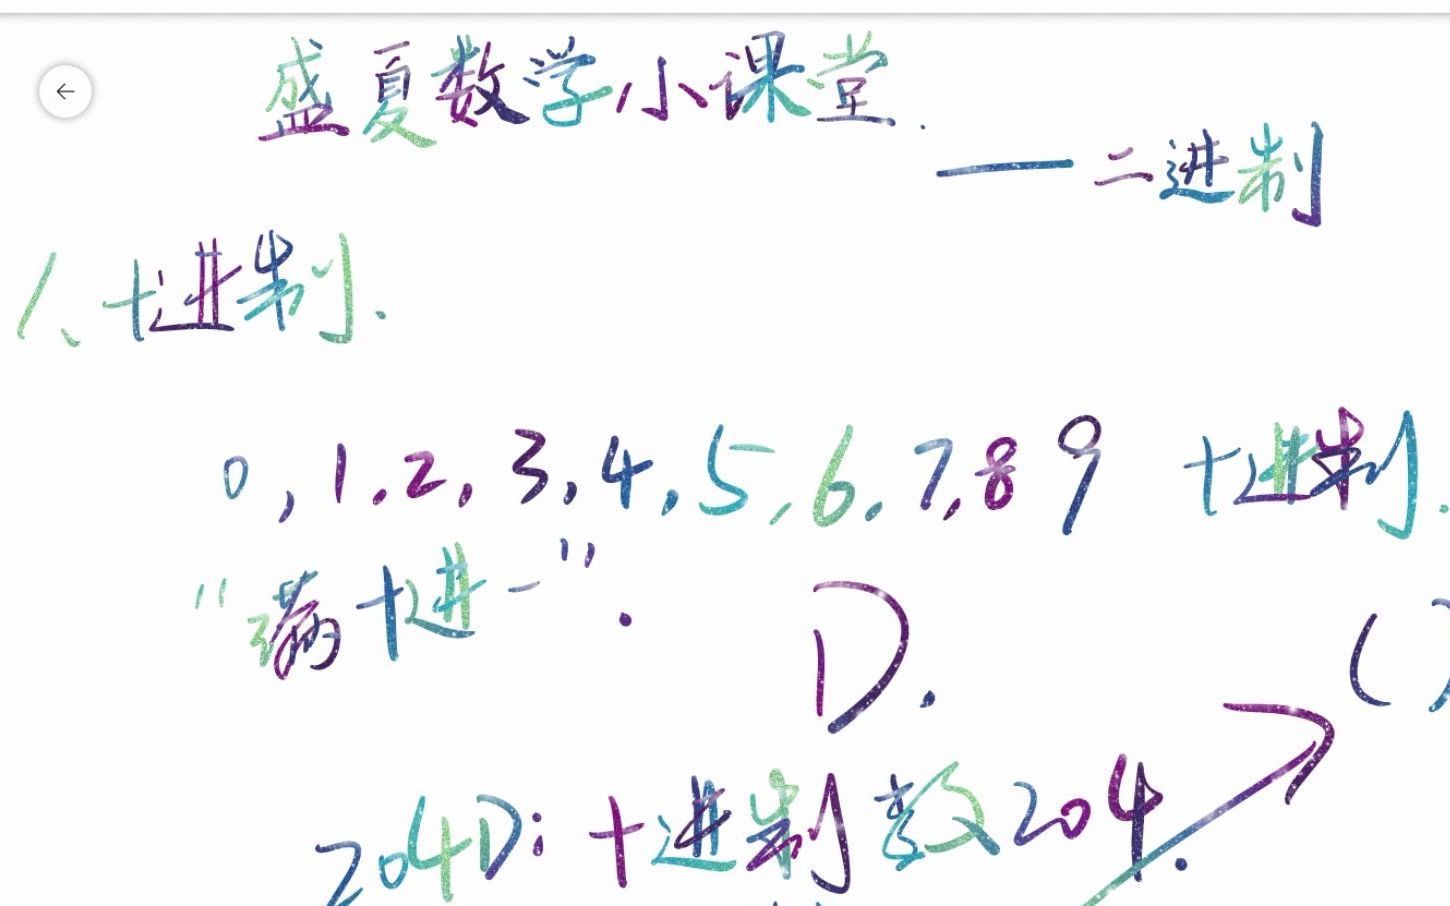 盛夏数学小课堂.
——二进制
1、十进制.
0,1.2,3,4,5,6.7,8 9 十进制.
"满十进一".
D.
( )
204D: 十进制数204.